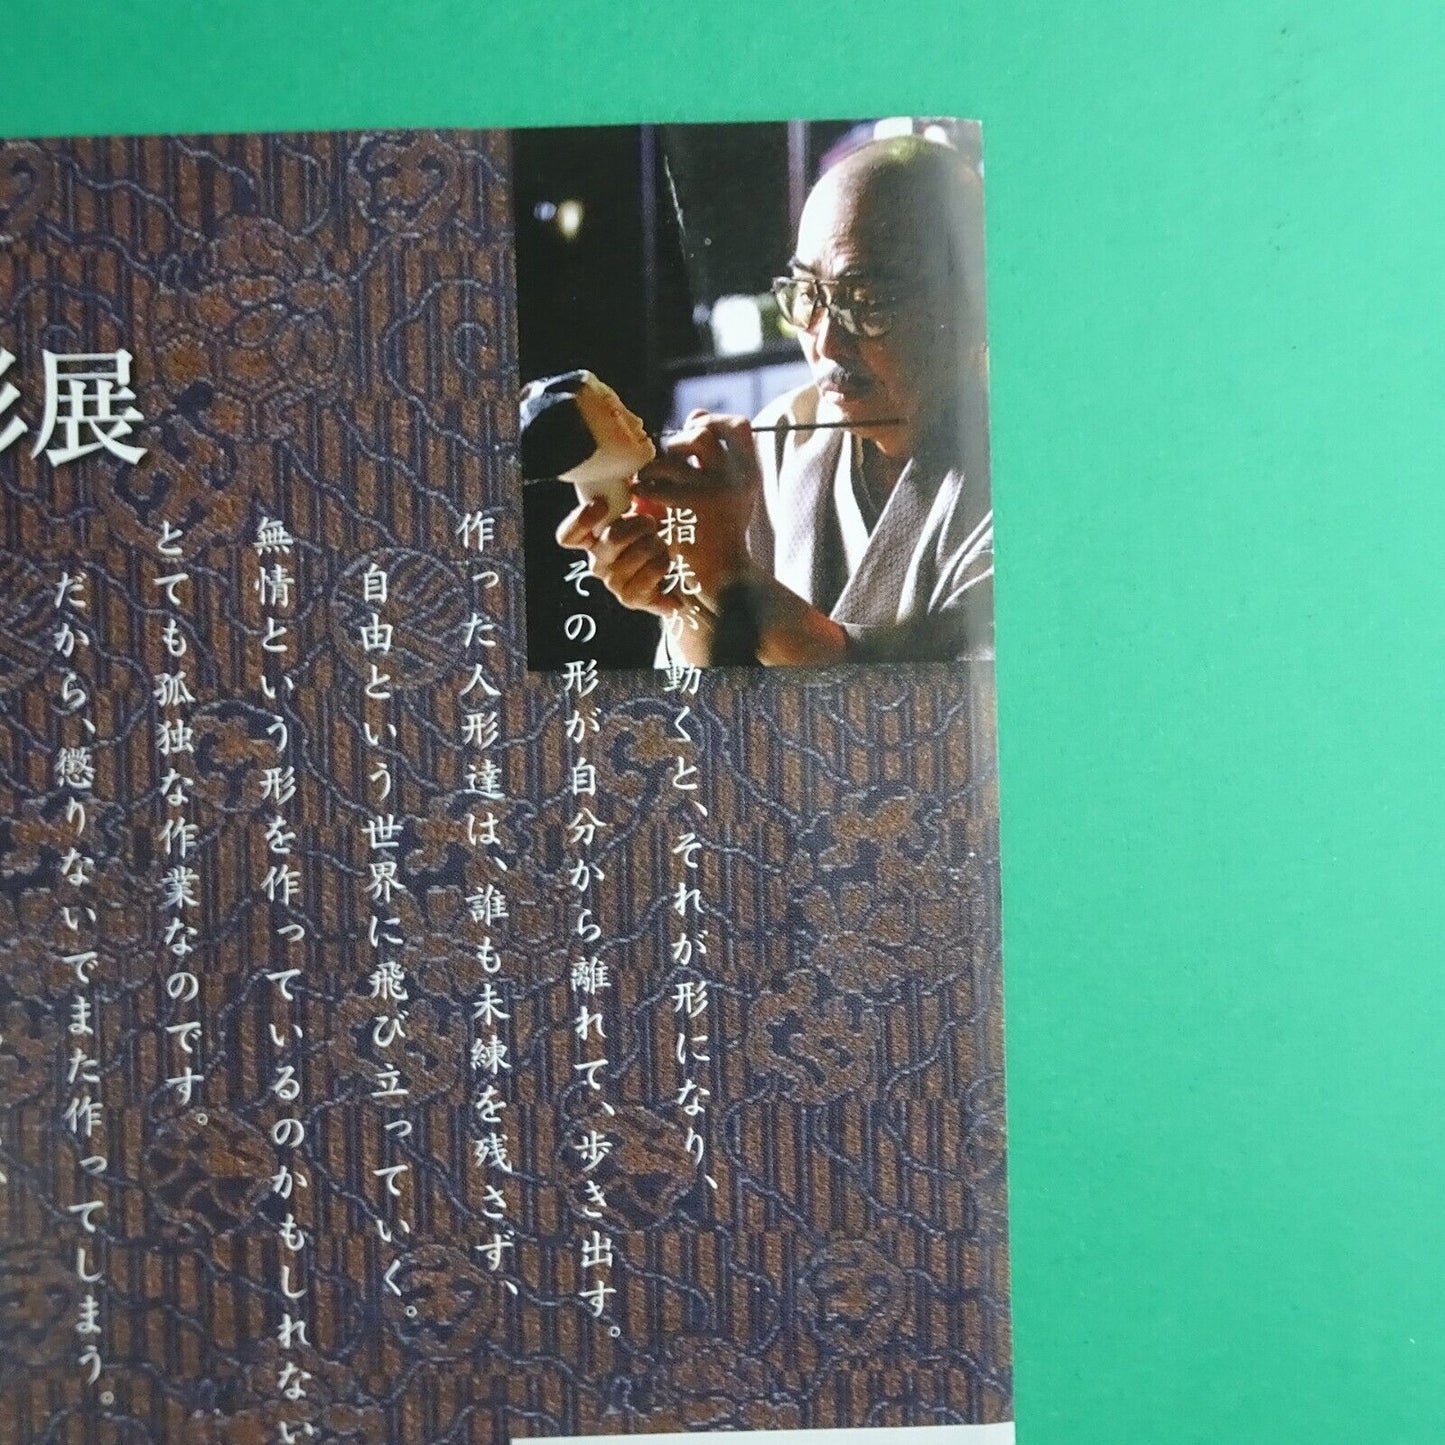 形展
指先が動くと、それが形になり、
その形が自分から離れて、歩き出す。
作った人形達は、誰も未練を残さず、
自由という世界に飛び立っていく。
無情という形を作っているのかもしれない
とても孤独な作業なのです。
だから、懲りないでまた作ってしまう。